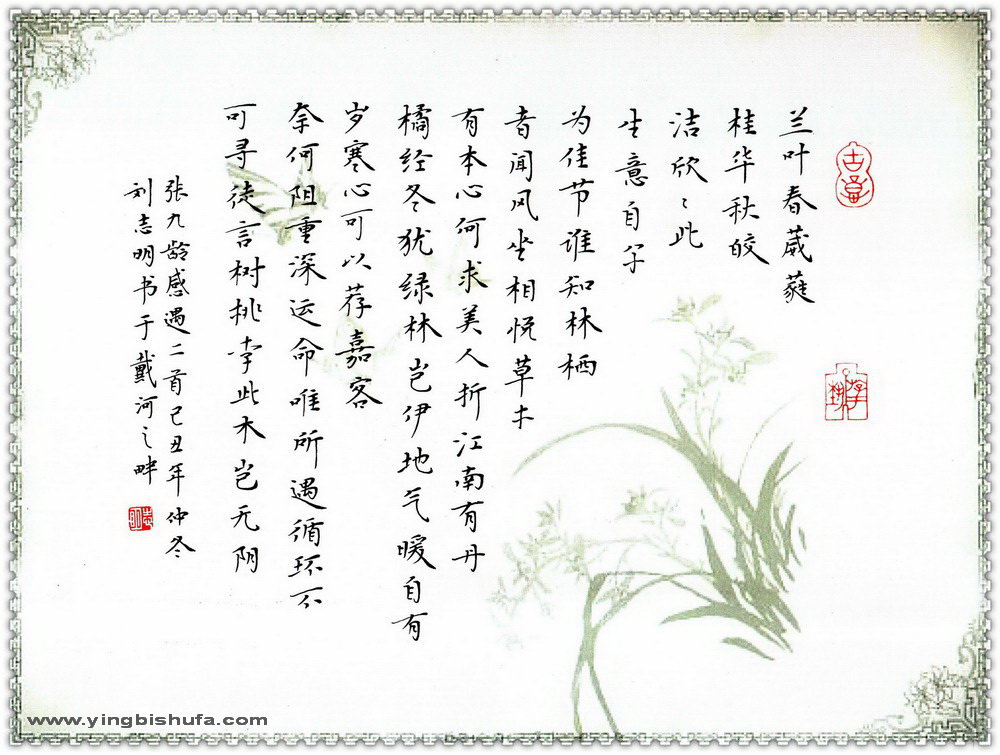 兰叶春葳蕤
桂华秋皎
洁欣〻此
生意自尔
为佳节谁知林栖
者闻风坐相悦草木
有本心何求美人折江南有丹
橘经冬犹绿林岂伊地气暖自有
岁寒心可以荐嘉客
奈何阻重深运命唯所遇循环不
可寻徒言树桃李此木岂无阴
张九龄感遇二首己丑年仲冬
刘志明书于戴河之畔
www.yingbishufa.com